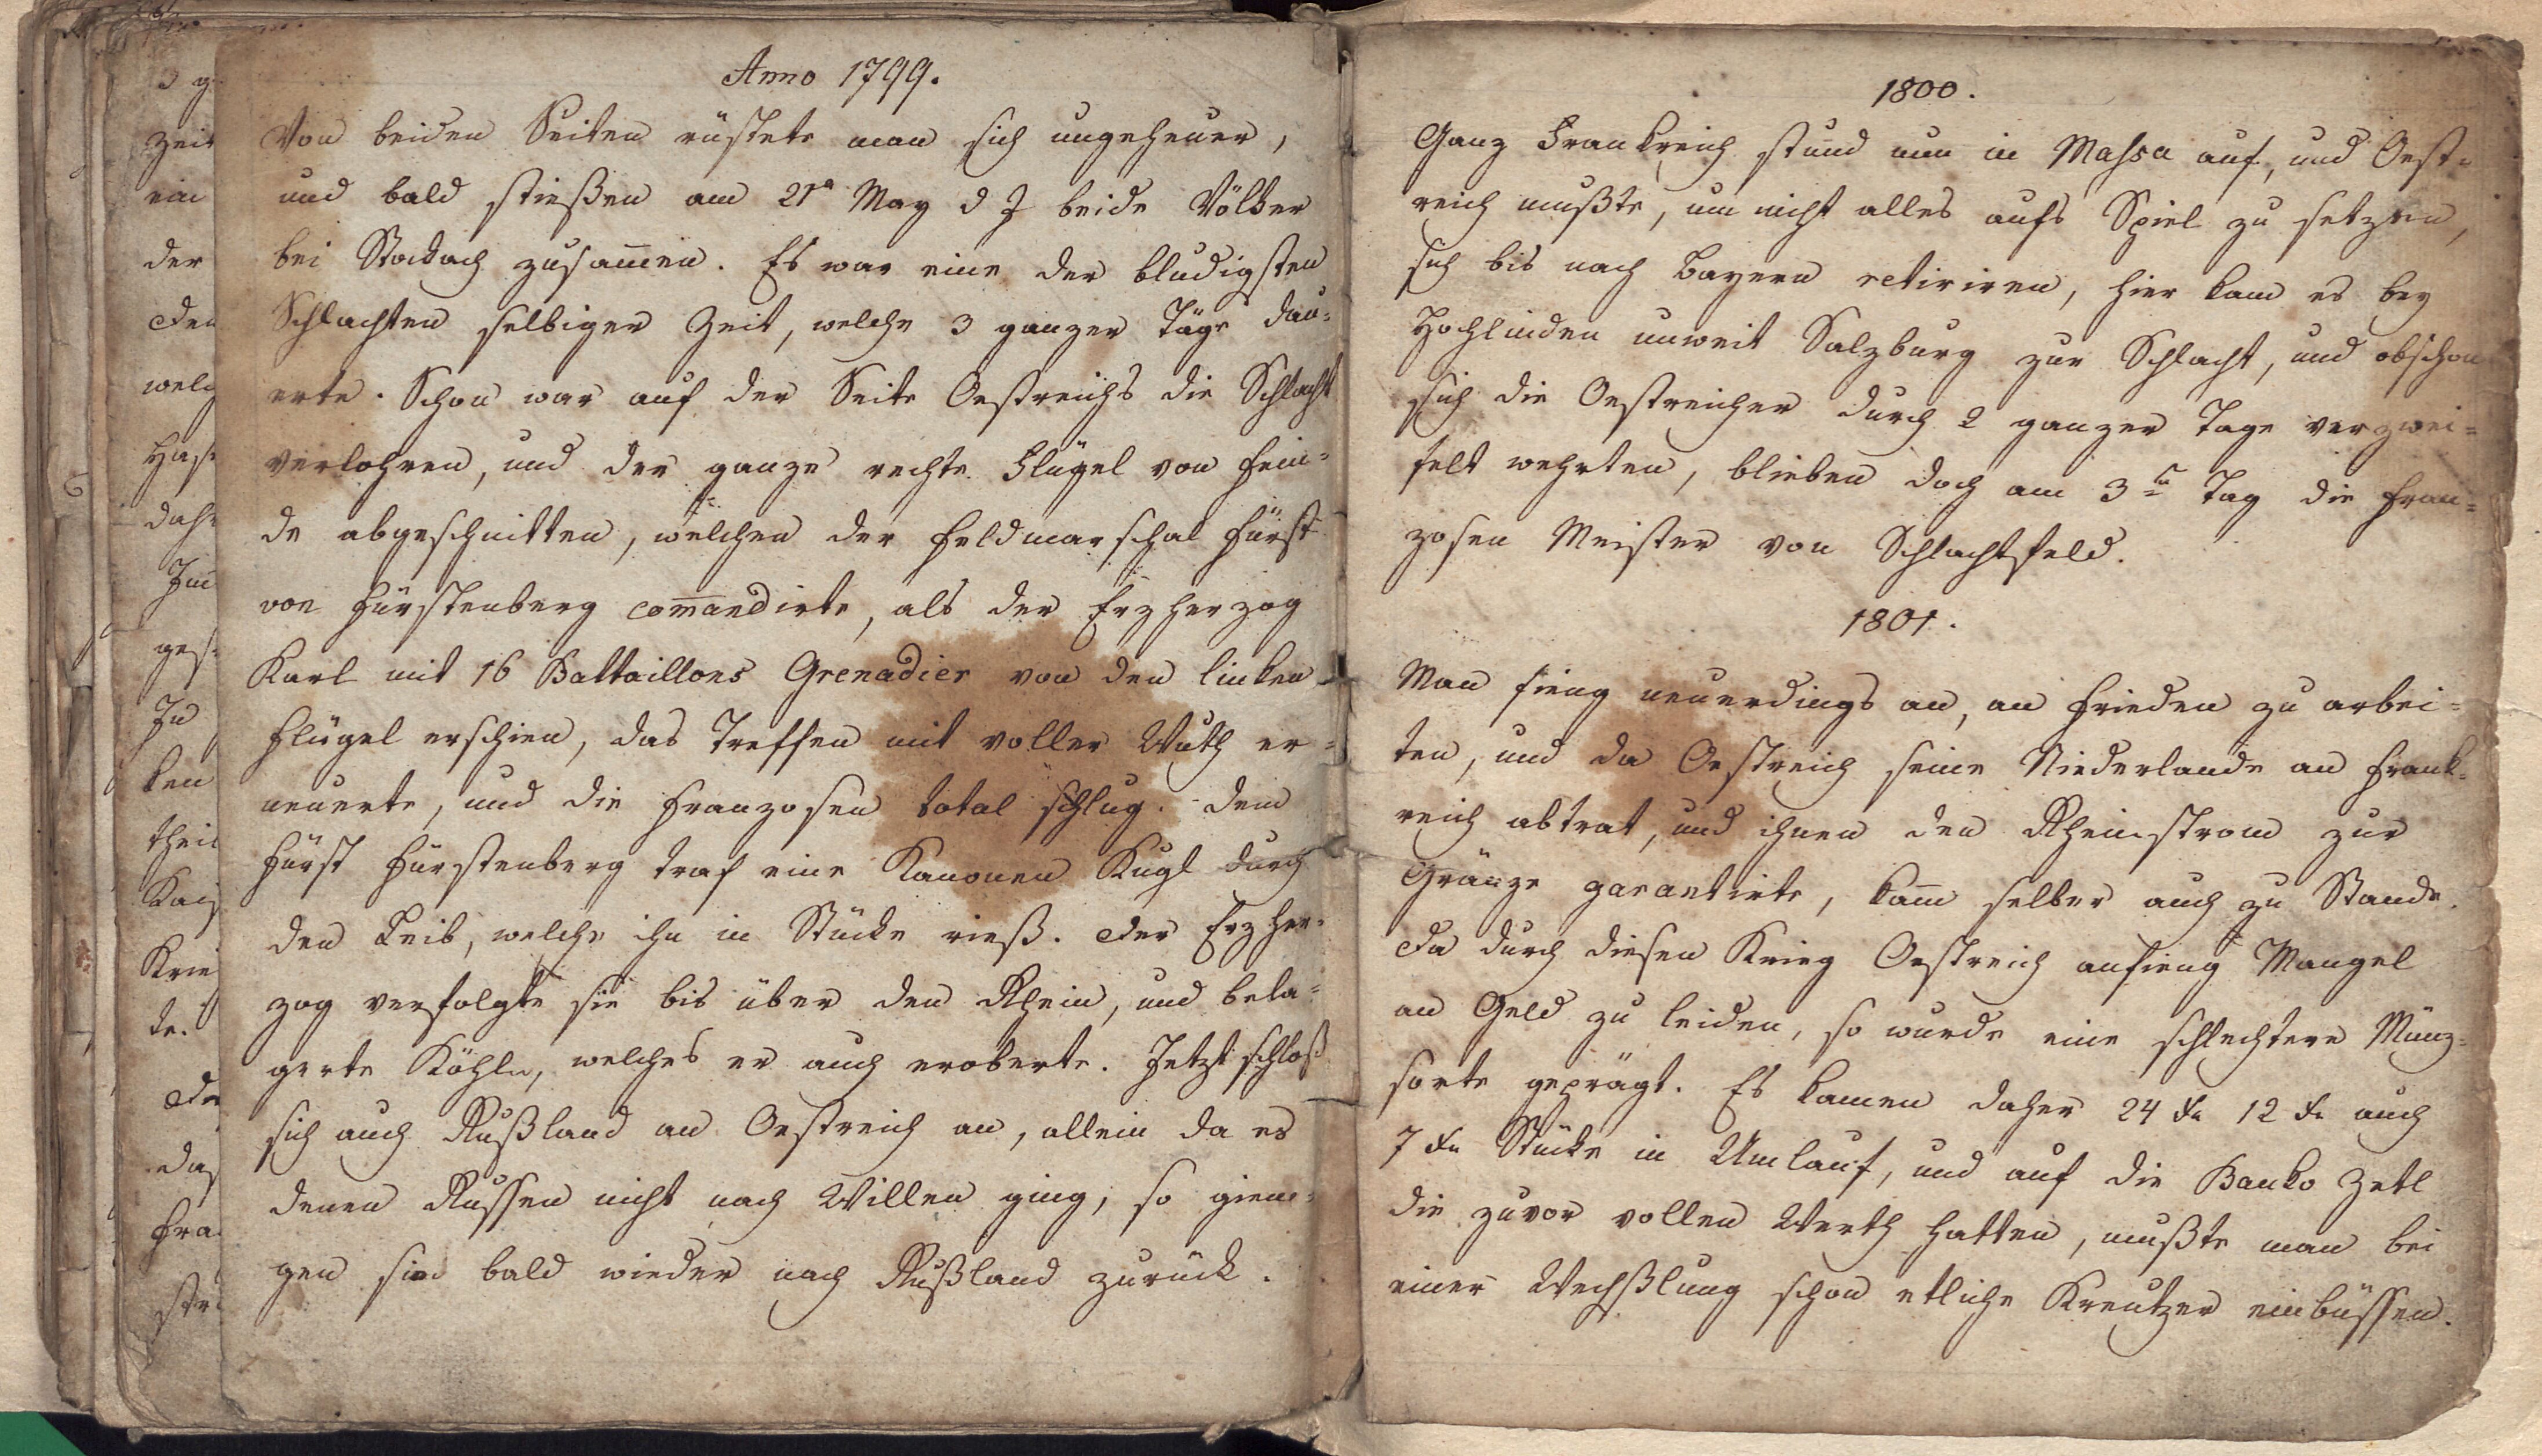 Anno 1799.
Von beiden Seiten rüstete man sich ungeheuer,
und bald stießen am 21a May d J beide Völker
bei Stockach zusam̄en. Es war eine der bludigsten
Schlachten selbiger Zeit, welche 3 ganzer Täge dau=
erte. Schon war auf der Seite Oestreichs die Schlacht
verlohren, und der ganze rechte Flügel von Fein=
de abgeschnitten, welchen der Feldmarschal Fürst
von Fürstenberg com̄andirte, als der Erzherzog
Karl mit 16 Battaillons Grenadier von den linken
Flügel erschien, das Treffen mit voller Wuth er=
neuerte, und die Franzosen total schlug. Dem
Fürst Fürstenberg traf eine Kanonen Kugl durch
den Leib, welche ihn in Stücke rieß. Der Erzher=
zog verfolgte sie bis über den Rhein, und bela=
gerte Köhln, welches er auch eroberte. Jetzt schloß
sich auch Rußland an Oestreich an, allein da es
denen Russen nicht nach Willen ging, so gien=
gen sie bald wieder nach Rußland zurück.
1800.
Ganz Frankreich stund nun in Massa auf, und Oest=
reich mußte, um nicht alles aufs Spiel zu setzen,
sich bis nach Bayern retiriren, hier kam es bey
Hochlinden unweit Salzburg zur Schlacht, und obschon
sich die Oestreicher durch 2 ganzer Tage verzwei=
felt wehrten, blieben doch am 3tn Tag die Fran=
zosen Meister von Schlachtfeld.
1801.
Man fieng neuerdings an, an Frieden zu arbei=
ten, und da Oestreich seine Niederlande an Frank=
reich abtrat, und ihnen den Rheinstrom zur
Gränze garantirte, kam̄ selber auch zu Stande.
Da durch diesen Krieg Oestreich anfieng Mangel
an Geld zu leiden, so wurde eine schlechtere Münz=
sorte geprägt. Es kamen daher 24 Xr 12 Xr auch
7 Xr Stücke in Umlauf, und auf die Banko Zetl
die zuvor vollen Werth hatten, mußte man bei
einer Wechßlung schon etliche Kreutzer einbüssen.